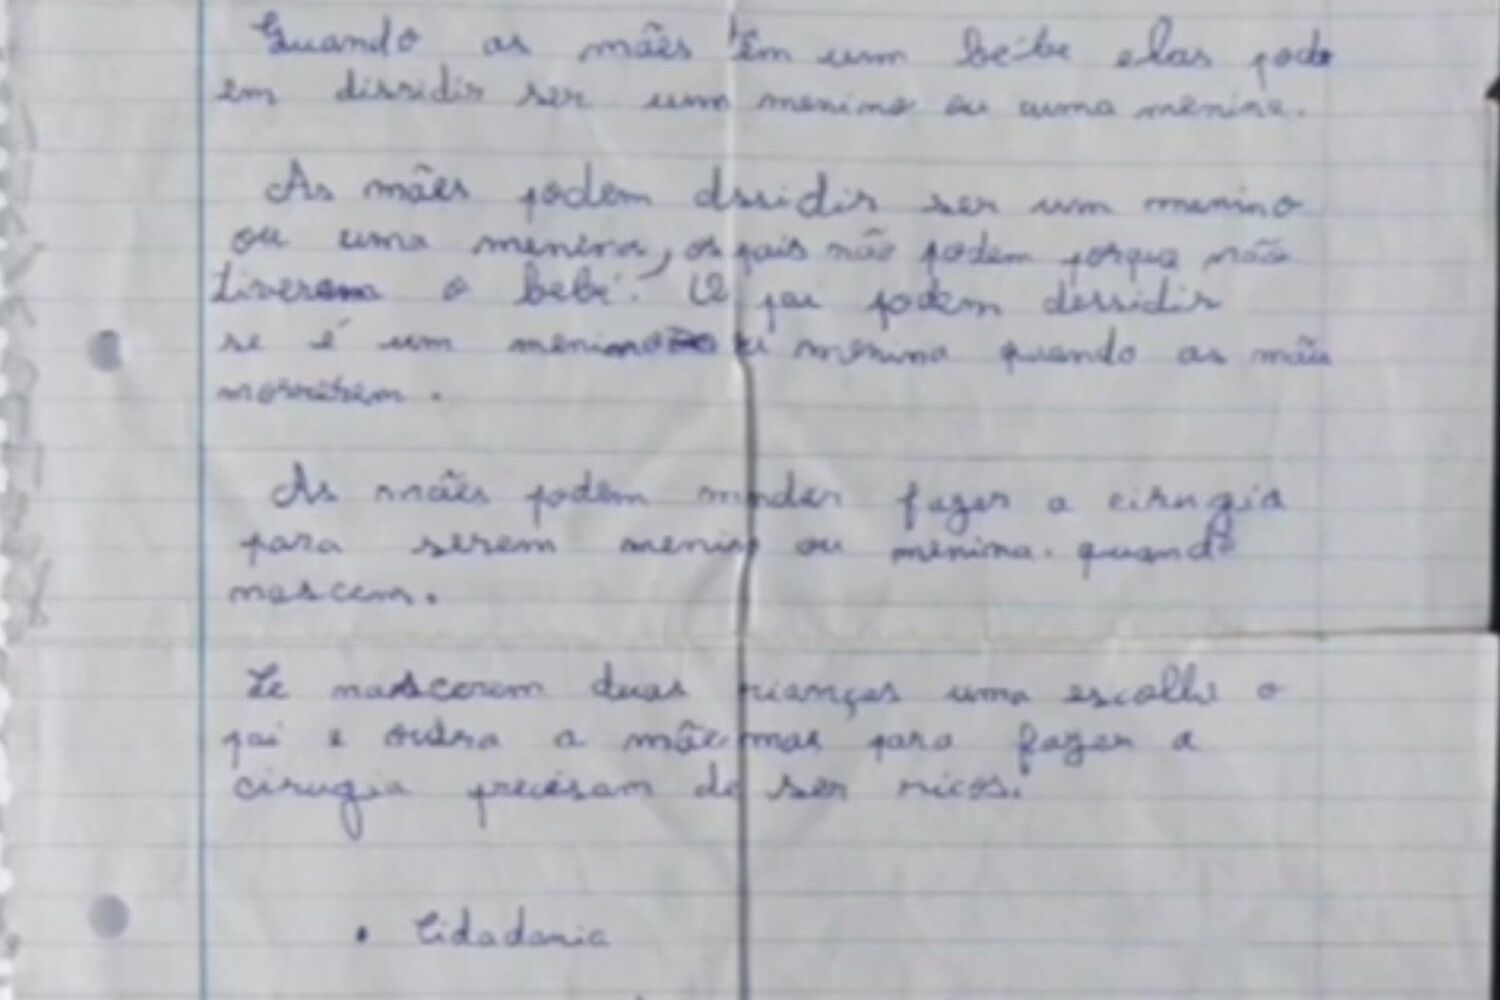 Quando as mães têm um bébe elas pode
em dissidir ser um menino ou uma menina.
As mães podem dssidir ser um menino
ou uma menina, os pais não podem porque não
tiveram o bebé. O pai podem dessidir
se é um menino ou menina quando as mãe
morrerem.
As mães podem mandar fazer a cirugia
para serem menino ou menina. quando
nascem.
Se nascerem duas crianças uma escolhe o
pai e outra a mãe mas para fazer a
cirugia precisam de ser ricos.
• Cidadania